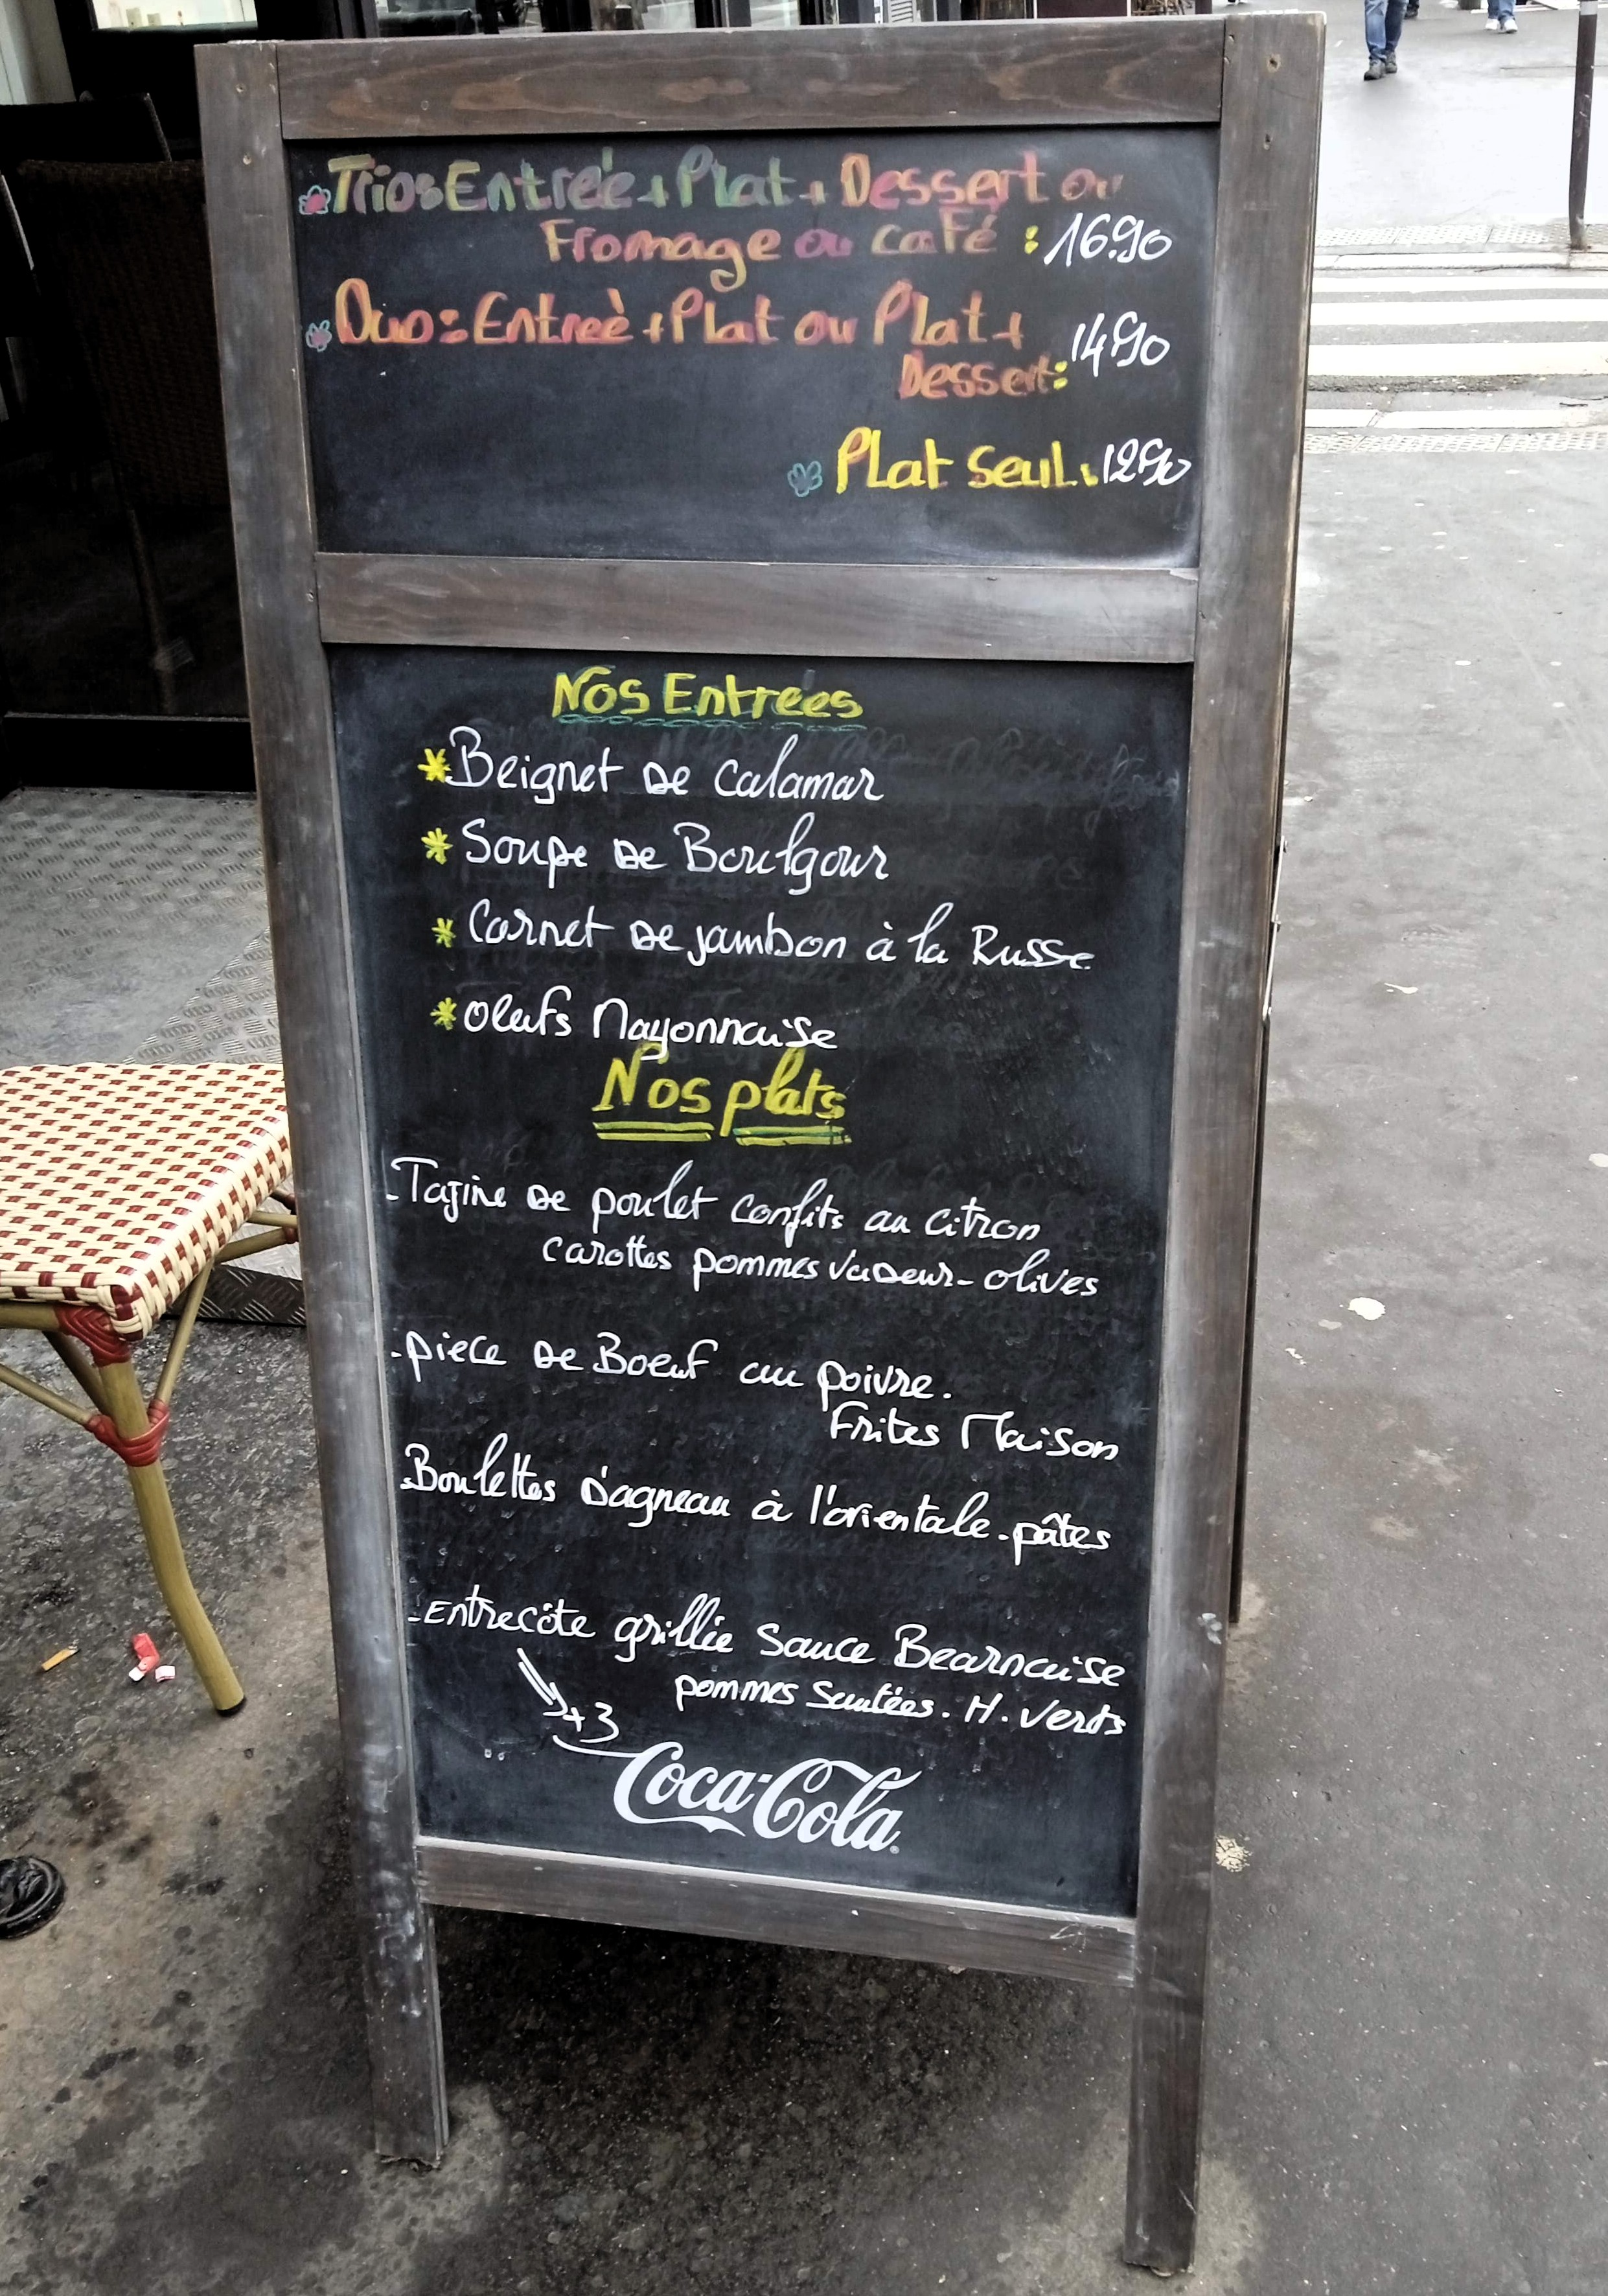 Trio: Entrée + Plat + Dessert ou
Fromage ou café : 16.90
Duo: Entreè + Plat ou Plat +
Dessert: 14.90
Plat seul: 12.90
Nos Entrees
* Beignet de calamar
* Soupe de Boulgour
* Cornet de jambon à la Russe
* Oeufs Mayonnaise
Nos plats
- Tajine de poulet confits au citron
carottes pommes vapeur - olives
- piece de Boeuf au poivre.
Frites Maison
. Boulettes d'agneau à l'orientale - pâtes
- Entrecôte grillée Sauce Bearnaise
pommes Sautées. H. Verts
+3
Coca-Cola®